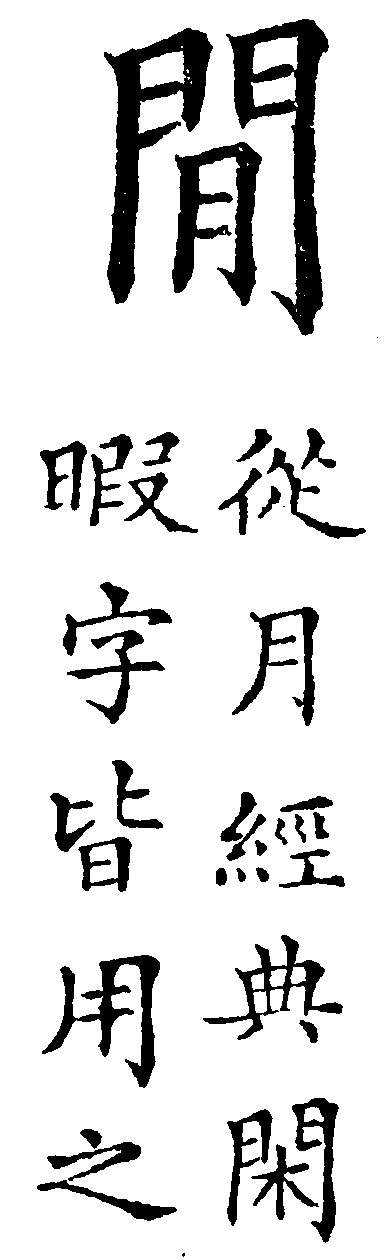 閒
從月經典閑
暇字皆用之